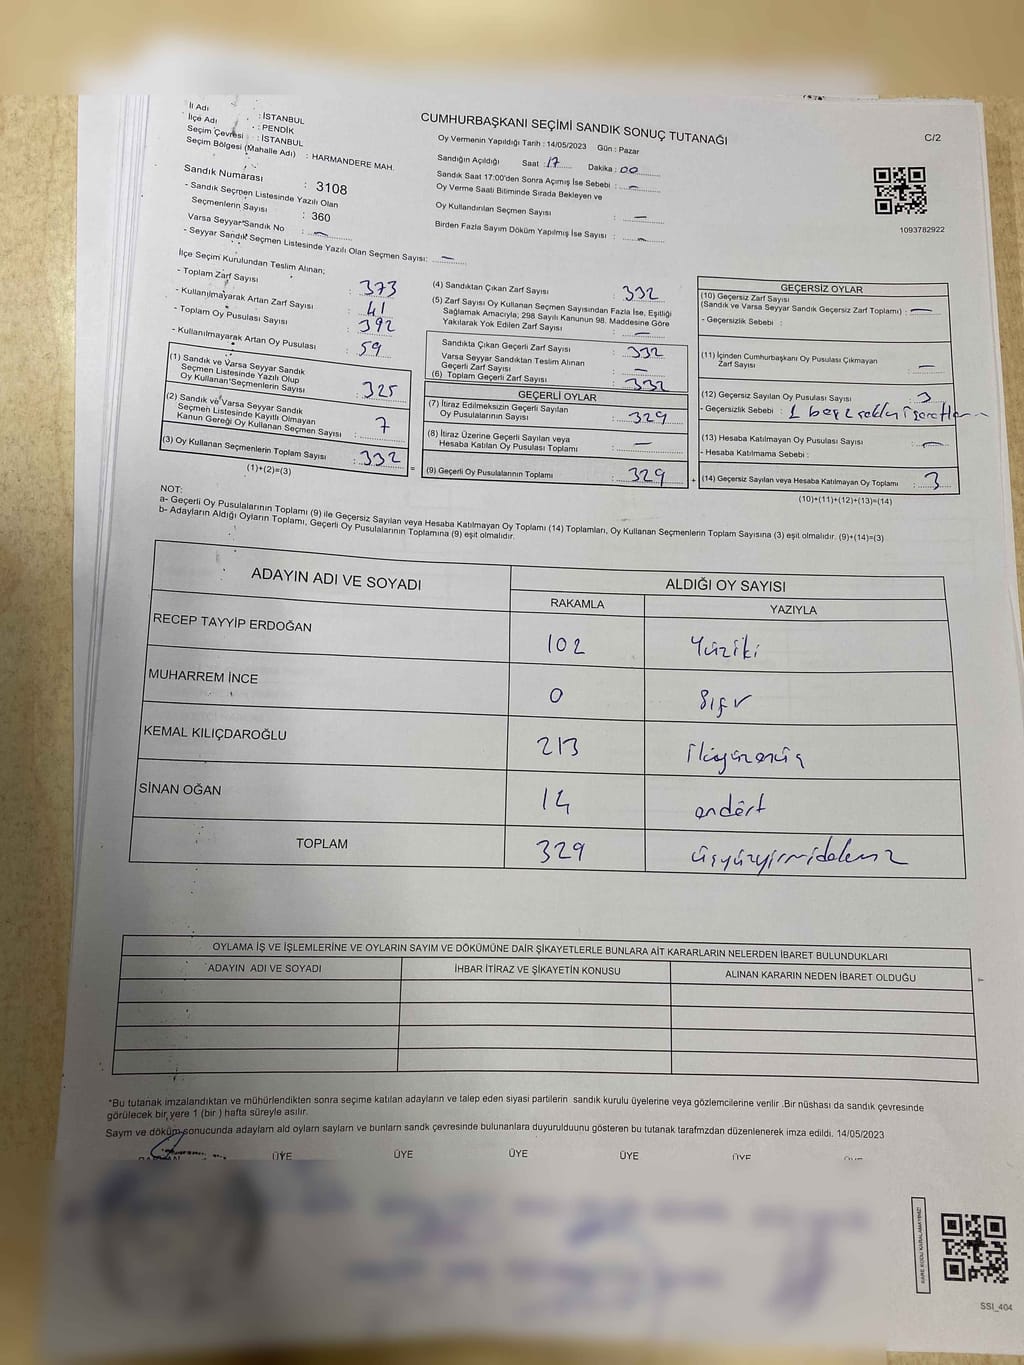 İl Adı : İSTANBUL
İlçe Adı : PENDİK
Seçim Çevresi : İSTANBUL
Seçim Bölgesi (Mahalle Adı) : HARMANDERE MAH.
Sandık Numarası : 3108
- Sandık Seçmen Listesinde Yazılı Olan
Seçmenlerin Sayısı : 360
Varsa Seyyar Sandık No : —
- Seyyar Sandık Seçmen Listesinde Yazılı Olan Seçmen Sayısı: —
CUMHURBAŞKANI SEÇİMİ SANDIK SONUÇ TUTANAĞI
C/2
Oy Vermenin Yapıldığı Tarih : 14/05/2023 Gün : Pazar
Sandığın Açıldığı Saat : 17 Dakika : 00
Sandık Saat 17:00'den Sonra Açımış İse Sebebi : —
Oy Verme Saati Bitiminde Sırada Bekleyen ve
Oy Kullandırılan Seçmen Sayısı : —
Birden Fazla Sayım Döküm Yapılmış İse Sayısı : —
1093782922
İlçe Seçim Kurulundan Teslim Alınan;
- Toplam Zarf Sayısı : 373
- Kullanılmayarak Artan Zarf Sayısı : 41
- Toplam Oy Pusulası Sayısı : 392
- Kullanılmayarak Artan Oy Pusulası : 59
(1) Sandık ve Varsa Seyyar Sandık
Seçmen Listesinde Yazılı Olup
Oy Kullanan Seçmenlerin Sayısı : 325
(2) Sandık ve Varsa Seyyar Sandık
Seçmen Listesinde Kayıtlı Olmayan
Kanun Gereği Oy Kullanan Seçmen Sayısı : 7
(3) Oy Kullanan Seçmenlerin Toplam Sayısı : 332
(1)+(2)=(3)
(4) Sandıktan Çıkan Zarf Sayısı : 332
(5) Zarf Sayısı Oy Kullanan Seçmen Sayısından Fazla İse, Eşitliği
Sağlamak Amacıyla; 298 Sayılı Kanunun 98. Maddesine Göre
Yakılarak Yok Edilen Zarf Sayısı : —
Sandıkta Çıkan Geçerli Zarf Sayısı : 332
Varsa Seyyar Sandıktan Teslim Alınan
Geçerli Zarf Sayısı : —
(6) Toplam Geçerli Zarf Sayısı : 332
GEÇERLİ OYLAR
(7) İtiraz Edilmeksizin Geçerli Sayılan
Oy Pusulalarının Sayısı : 329
(8) İtiraz Üzerine Geçerli Sayılan veya
Hesaba Katılan Oy Pusulası Toplamı : —
= (9) Geçerli Oy Pusulalarının Toplamı : 329 +
GEÇERSİZ OYLAR
(10) Geçersiz Zarf Sayısı
(Sandık ve Varsa Seyyar Sandık Geçersiz Zarf Toplamı) : —
- Geçersizlik Sebebi :
(11) İçinden Cumhurbaşkanı Oy Pusulası Çıkmayan
Zarf Sayısı : —
(12) Geçersiz Sayılan Oy Pusulası Sayısı : 3
- Geçersizlik Sebebi : 1
(13) Hesaba Katılmayan Oy Pusulası Sayısı : —
- Hesaba Katılmama Sebebi :
(14) Geçersiz Sayılan veya Hesaba Katılmayan Oy Toplamı : 3
(10)+(11)+(12)+(13)=(14)
NOT:
a- Geçerli Oy Pusulalarının Toplamı (9) ile Geçersiz Sayılan veya Hesaba Katılmayan Oy Toplamı (14) Toplamları, Oy Kullanan Seçmenlerin Toplam Sayısına (3) eşit olmalıdır. (9)+(14)=(3)
b- Adayların Aldığı Oyların Toplamı, Geçerli Oy Pusulalarının Toplamına (9) eşit olmalıdır.
ADAYIN ADI VE SOYADI ALDIĞI OY SAYISI
RAKAMLA YAZIYLA
RECEP TAYYİP ERDOĞAN 102 Yüziki
MUHARREM İNCE 0 Sıfır
KEMAL KILIÇDAROĞLU 213 ikiyüzonüç
SİNAN OĞAN 14 ondört
TOPLAM 329 üçyüzyirmidokuz
OYLAMA İŞ VE İŞLEMLERİNE VE OYLARIN SAYIM VE DÖKÜMÜNE DAİR ŞİKAYETLERLE BUNLARA AİT KARARLARIN NELERDEN İBARET BULUNDUKLARI
ADAYIN ADI VE SOYADI İHBAR İTİRAZ VE ŞİKAYETİN KONUSU ALINAN KARARIN NEDEN İBARET OLDUĞU
*Bu tutanak imzalandıktan ve mühürlendikten sonra seçime katılan adayların ve talep eden siyasi partilerin sandık kurulu üyelerine veya gözlemcilerine verilir .Bir nüshası da sandık çevresinde
görülecek bir yere 1 (bir ) hafta süreyle asılır.
Saym ve döküm sonucunda adaylarn ald oylarn saylarn ve bunlarn sandk çevresinde bulunanlara duyurulduunu gösteren bu tutanak tarafmzdan düzenlenerek imza edildi. 14/05/2023
ÜYE ÜYE ÜYE ÜYE ÜYE
KARE KODU KARALAMAYINIZ!
SSI_404